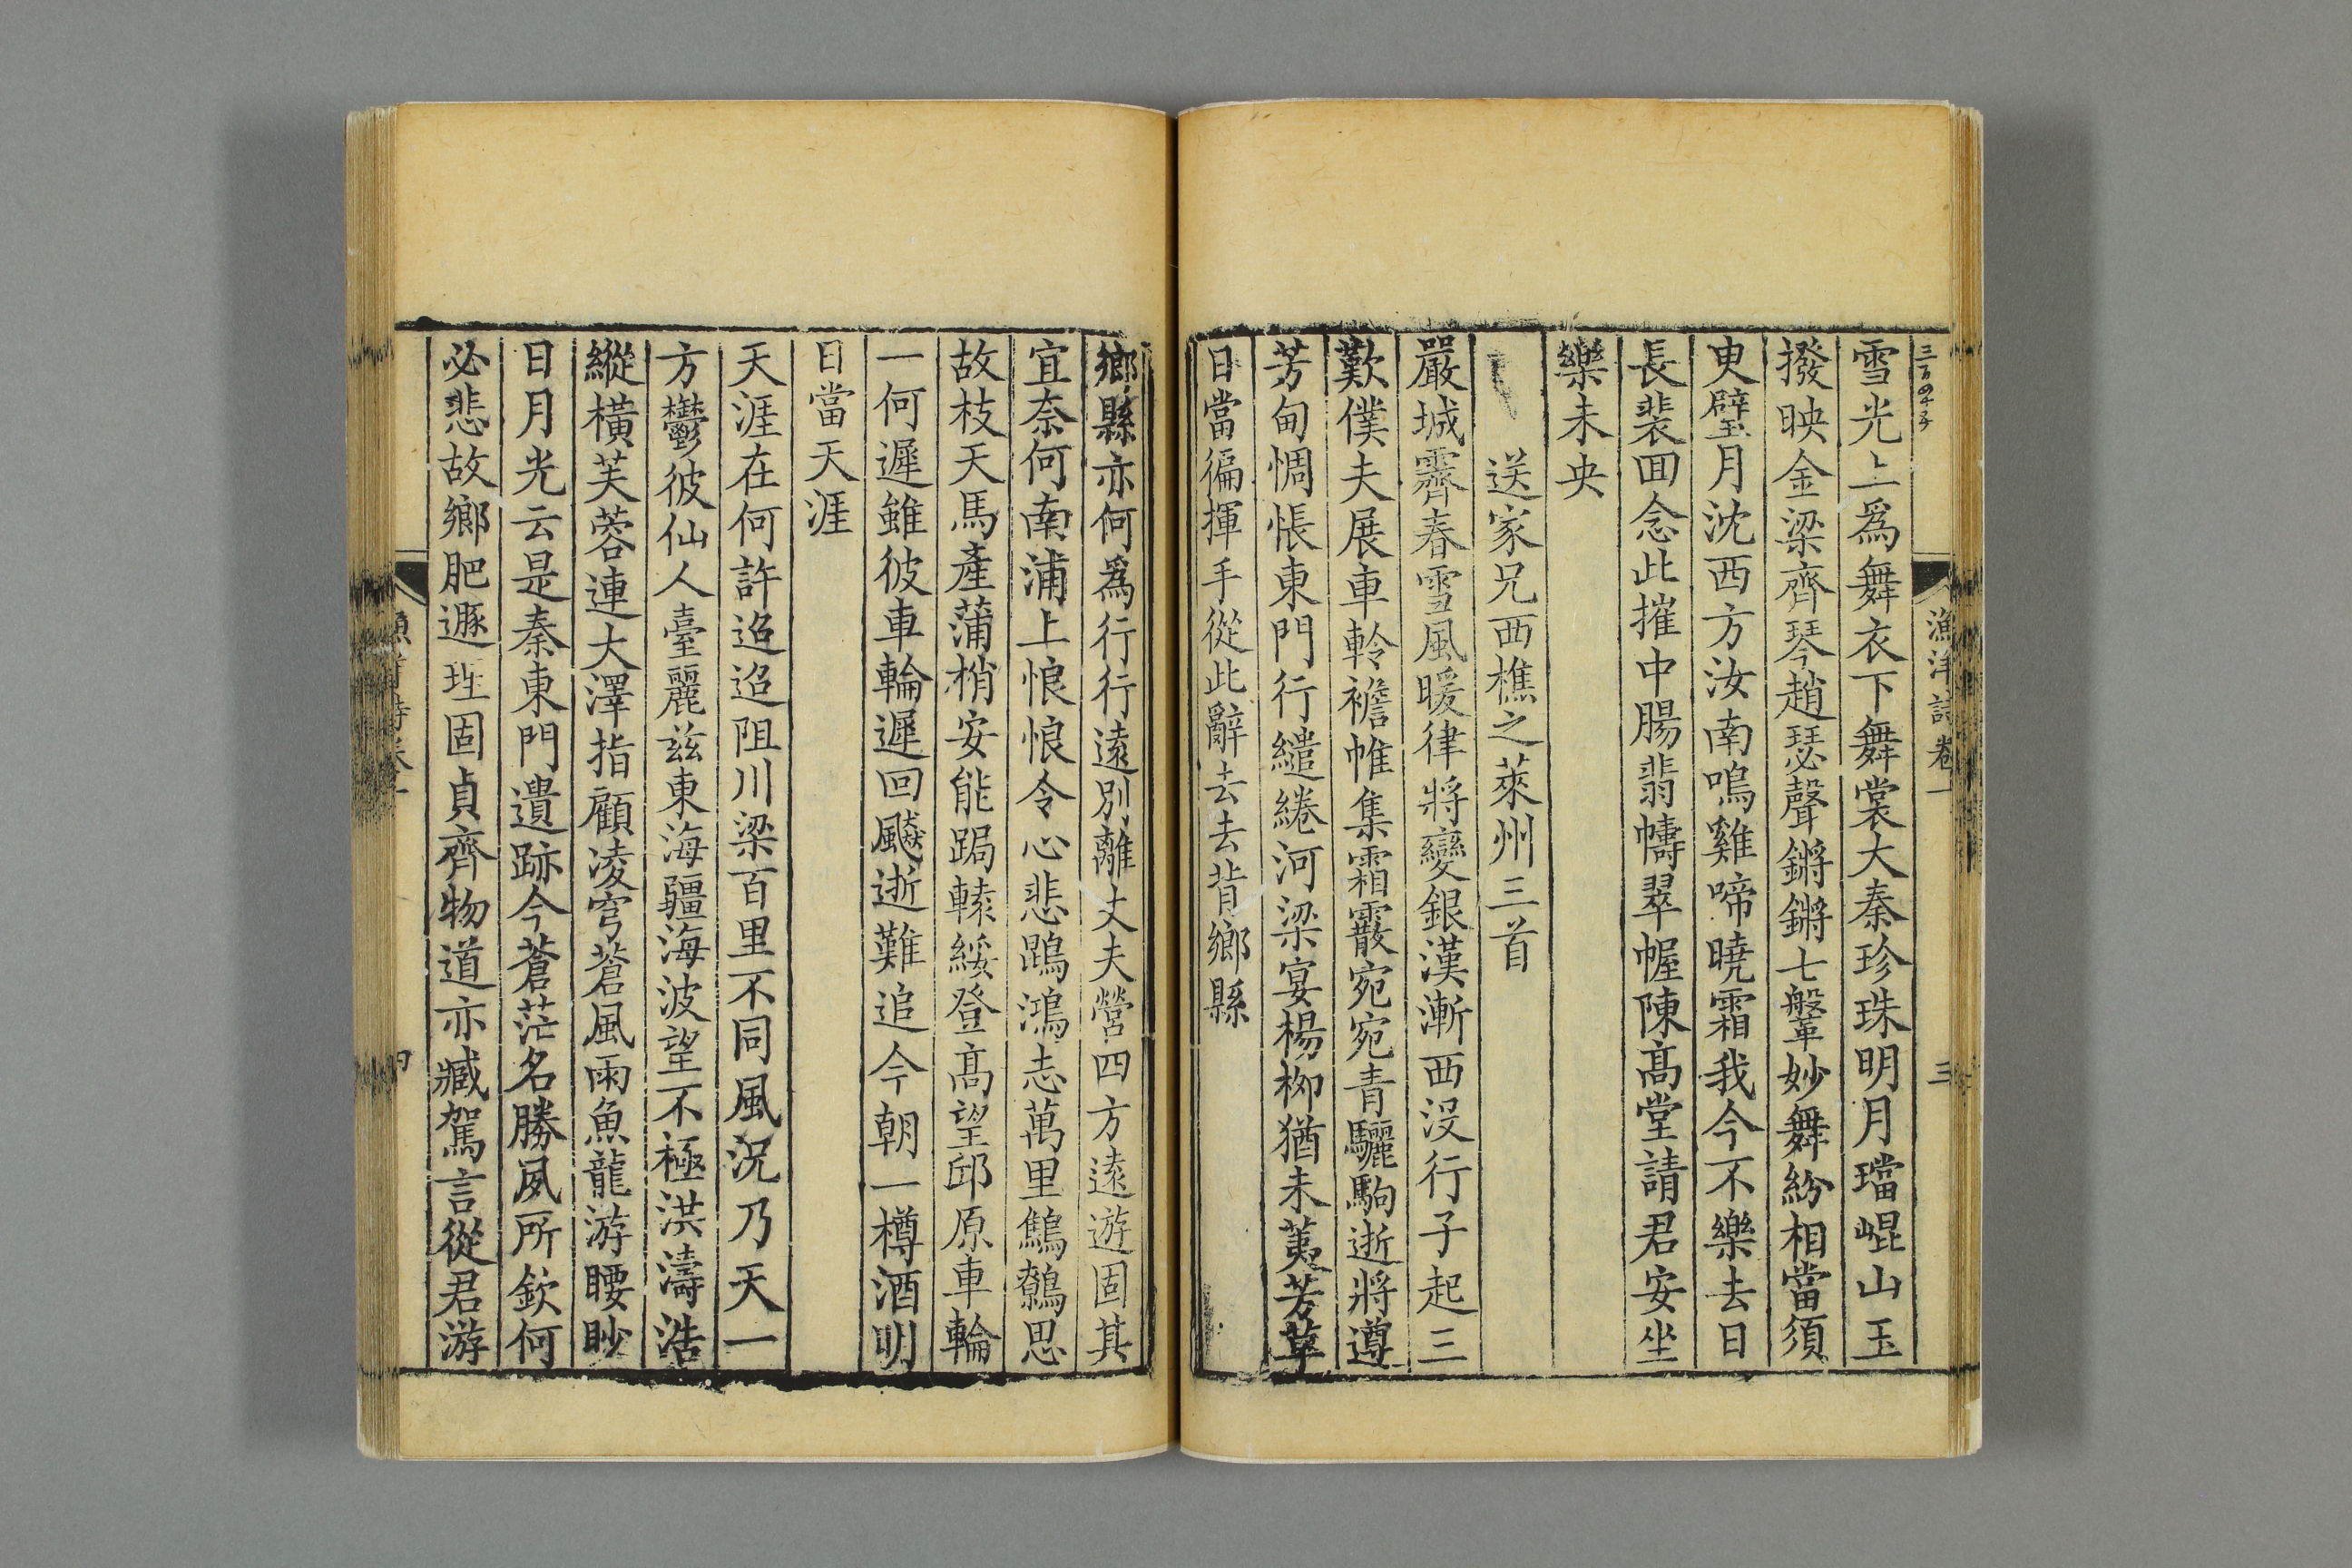 三百四十子
漁洋詩卷一 三
雪光上爲舞衣下舞裳大秦珍珠明月璫崐山玉
撥映金梁齊琴趙瑟聲鏘鏘七鞶妙舞紛相當須
臾璧月沈西方汝南鳴雞啼曉霜我今不樂去日
長裴回念此摧中腸翡幬翠幄陳高堂請君安坐
樂未央
送家兄西樵之萊州三首
嚴城霽春雪風暖律將變銀漢漸西没行子起三
歎僕夫展車軨襜帷集霜霰宛宛青驪駒逝將遵
芳甸惆悵東門行繾綣河梁宴楊栁猶未荑芳草
日當徧揮手從此辭去去背鄉縣
鄉縣亦何爲行行遠別離丈夫營四方遠遊固其
宜奈何南浦上悢悢令心悲鵾鴻志萬里鷦鷯思
故枝天馬產蒲梢安能跼轅綏登高望邱原車輪
一何遲雖彼車輪遲回飇逝難追今朝一樽酒明
日當天涯
天涯在何許迢迢阻川梁百里不同風況乃天一
方鬱彼仙人臺麗兹東海疆海波望不極洪濤浩
縱橫芙蓉連大澤指顧凌穹蒼風雨魚龍游腰眇
日月光云是秦東門遺跡今蒼茫名勝夙所欽何
必悲故鄉肥遯理固貞齊物道亦臧駕言從君游
漁洋詩卷一 四